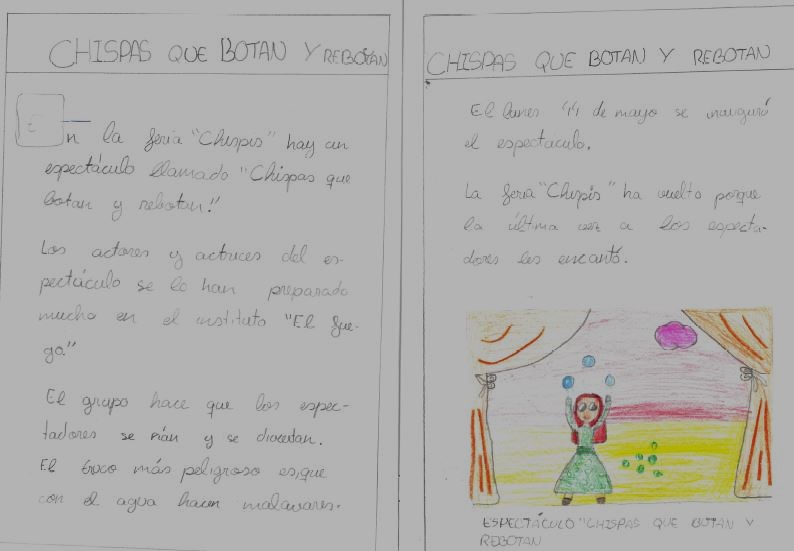 CHISPAS QUE BOTAN Y REBOTAN
En la feria "Chispis" hay un
espectáculo llamado "Chispas que
botan y rebotan."
Los actores y actrices del es-
pectáculo se lo han preparado
mucho en el instituto "El fue-
go."
El grupo hace que los espec-
tadores se rían y se diviertan.
El truco más peligroso es, que
con el agua hacen malavares.
CHISPAS QUE BOTAN Y REBOTAN
El lunes 14 de mayo se inauguró
el espectáculo.
La feria "Chispis" ha vuelto porque
la última vez a los especta-
dores les encantó.
ESPECTÁCULO "CHISPAS QUE BOTAN Y
REBOTAN